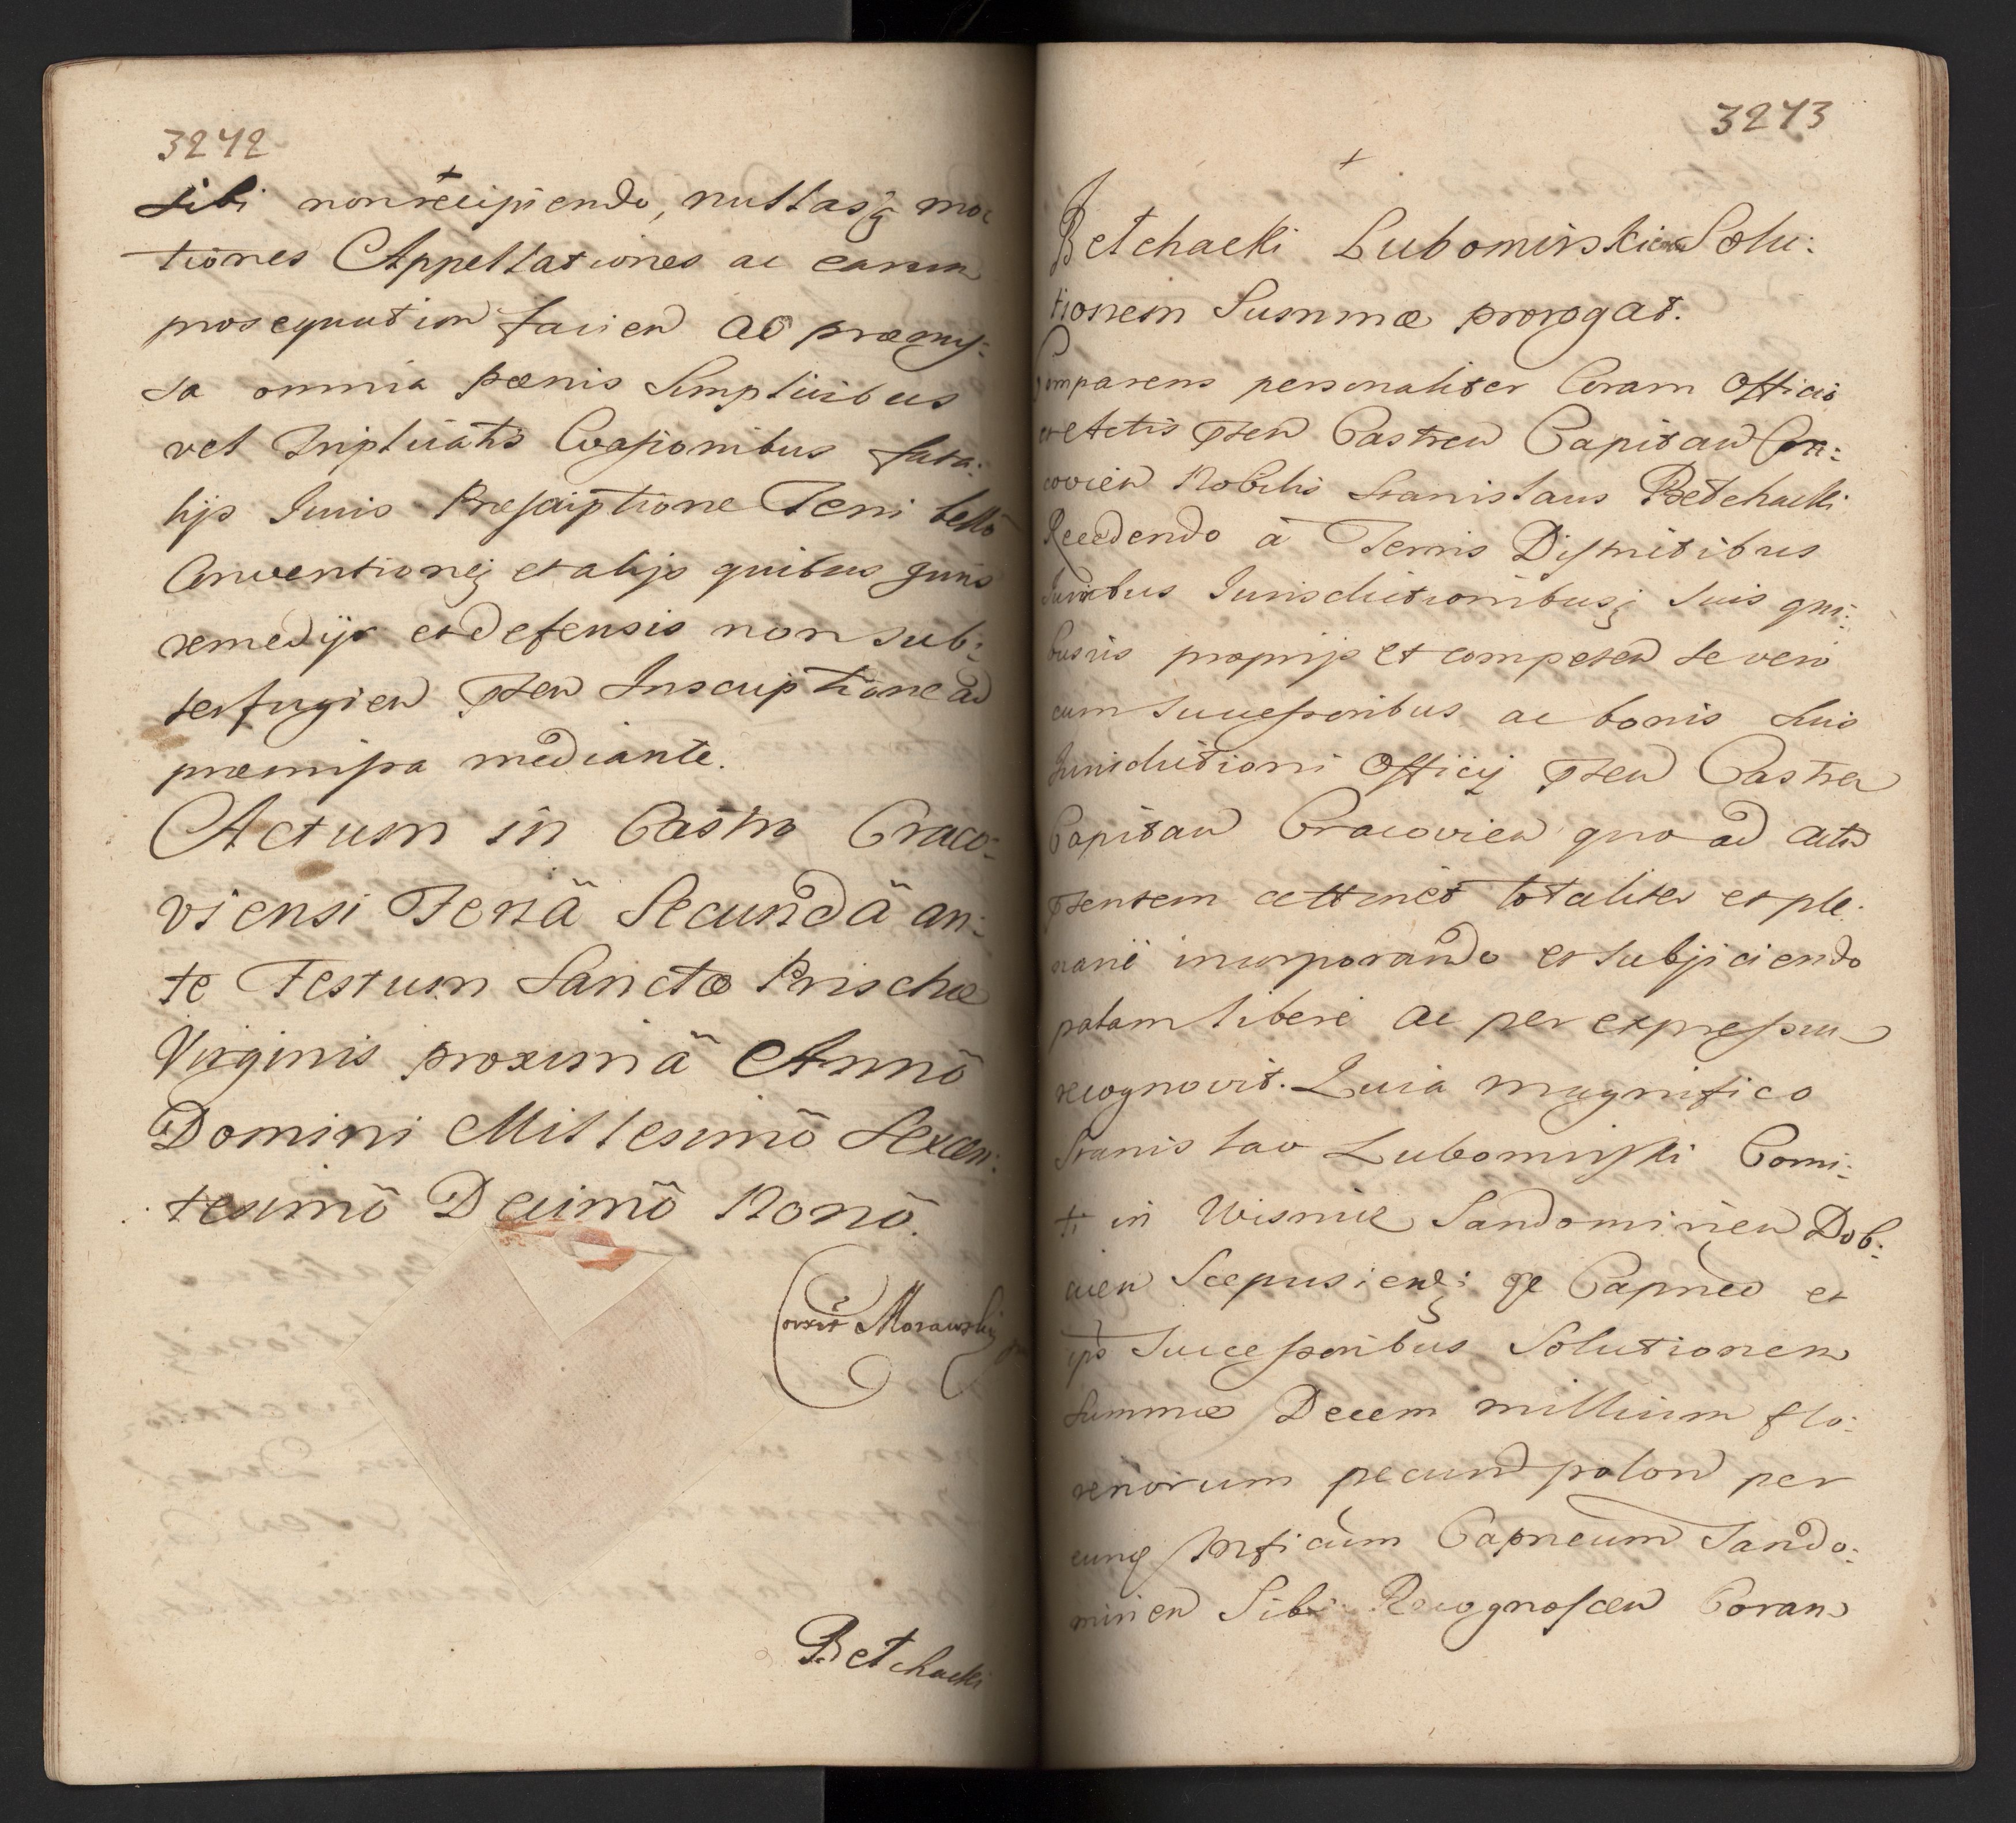 3242
sibi non recipiendo, nullasq mo
tiones Appellationes ac earum
prosequution facien ad præmis:
sa omnia pœnis Simplicibus
vel Triplicatis Evasionibus fata:
lijs Iuris Præscriptione Terri bello
Conventioneq et alijs quibus Iuris
remedijs et defensis non sub:
terfugien Pnten Inscriptione ad
præmissa mediante.
Actum in Castro Craco:
viensi Feriâ Secundâ an:
te Festum Sanctæ Prischæ
Virginis proximâ Annô
Domini Millesimô Sexcen:
tesimô Decimô Nonô.
Corrxit Morawski
Betchacki
3243
Betchacki Lubomirskiem Solu:
tionem Summæ prorogat.
Comparens personaliter Coram Officio
et Actis Pnten Castren Capitan Cra:
covien Nobilis Stanislaus Betchacki
Recedendo à Terris Districtibus
Iuribus Iurisdictionibusq suis qui:
busvis proprijs et competen se vero
cum Successoribus ac bonis suis
Iurisdictioni Officij Pnten Castren
Capitan Cracovien quo ad actu
Pntem attinet totaliter et ple:
narie incorporando et subjiciendo
palam libere ac per expressum
recognovit. Quia magnifico
Stanislao Lubomirski Comi:
ti in Wisnicz Sandomirien Dob:
cien Scepusienq; &c Capneo et
ips Successoribus Solutionem
Summæ Decem millium flo:
renorum pecun polon per
eunq Mficum Capneum Sando:
mirien Sibi Recognoscen Coram